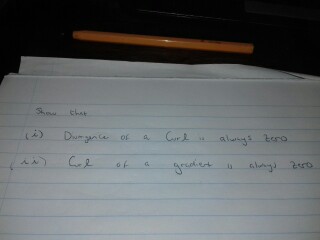 Show that
(i) Divergence of a Curl is always zero
(ii) Curl of a gradient is always zero